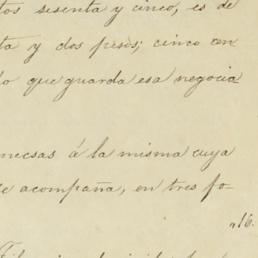 tos sesenta y cinco, es de
ta y dos pesos; cinco cen
lo que guarda esa negocia
mecsas á la misma cuya
se acompaña, en tres fo-